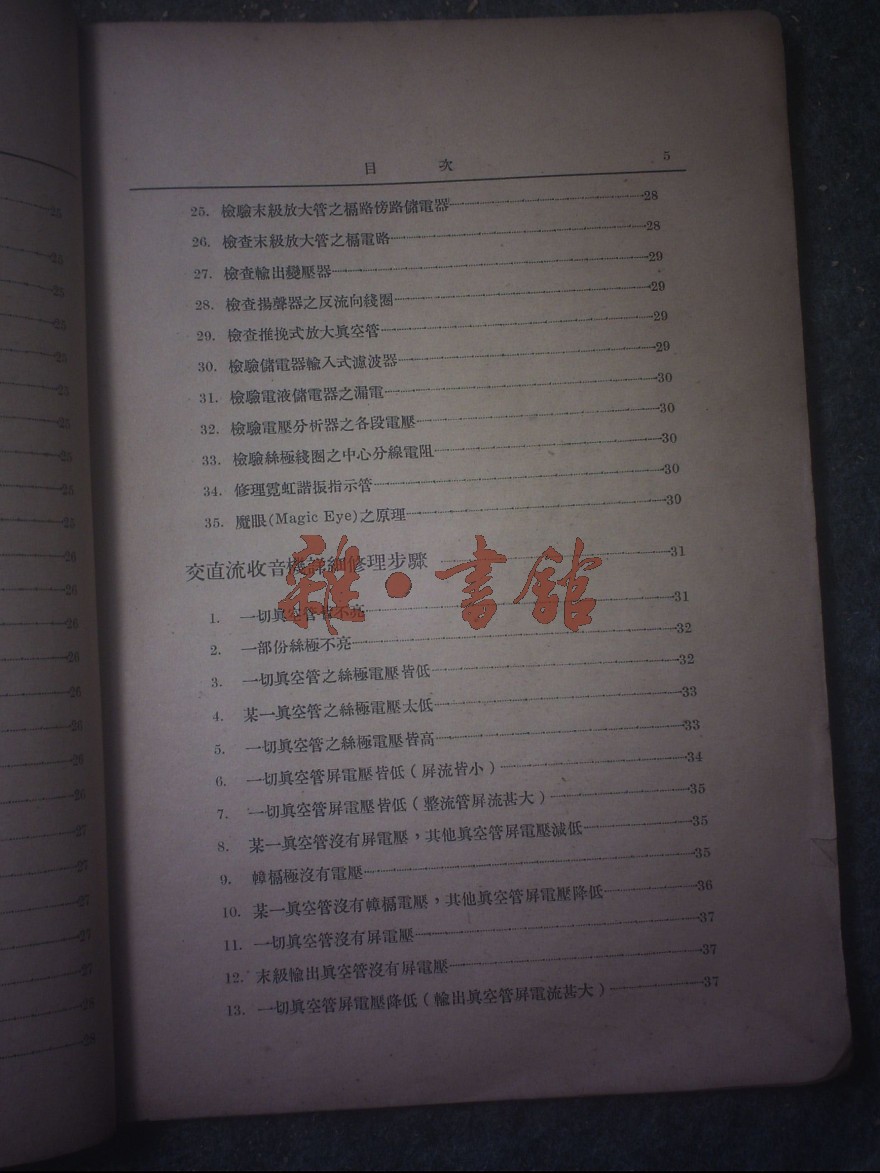 目 次 5
25. 檢驗末級放大管之槅路傍路儲電器 28
26. 檢查末級放大管之槅電路 28
27. 檢查輸出變壓器 29
28. 檢查揚聲器之反流向綫圈 29
29. 檢查推挽式放大眞空管 29
30. 檢驗儲電器輸入式濾波器 29
31. 檢驗電液儲電器之漏電 30
32. 檢驗電壓分析器之各段電壓 30
33. 檢驗絲極綫圈之中心分線電阻 30
34. 修理霓虹諧振指示管 30
35. 魔眼(Magic Eye)之原理 30
交直流收音機詳細修理步驟 31
1. 一切眞空管皆不亮 31
2. 一部份絲極不亮 32
3. 一切眞空管之絲極電壓皆低 32
4. 某一眞空管之絲極電壓太低 33
5. 一切眞空管之絲極電壓皆高 33
6. 一切眞空管屏電壓皆低（屏流皆小） 34
7. 一切眞空管屏電壓皆低（整流管屏流甚大） 35
8. 某一眞空管沒有屏電壓，其他眞空管屏電壓減低 35
9. 幛槅極沒有電壓 35
10. 某一眞空管沒有幛槅電壓，其他眞空管屏電壓降低 36
11. 一切眞空管沒有屏電壓 37
12. 末級輸出眞空管沒有屏電壓 37
13. 一切眞空管屏電壓降低（輸出眞空管屏電流甚大） 37
雜·書館
25
25
25
25
25
25
25
25
25
25
26
26
26
26
26
26
26
26
27
27
27
27
27
28
28